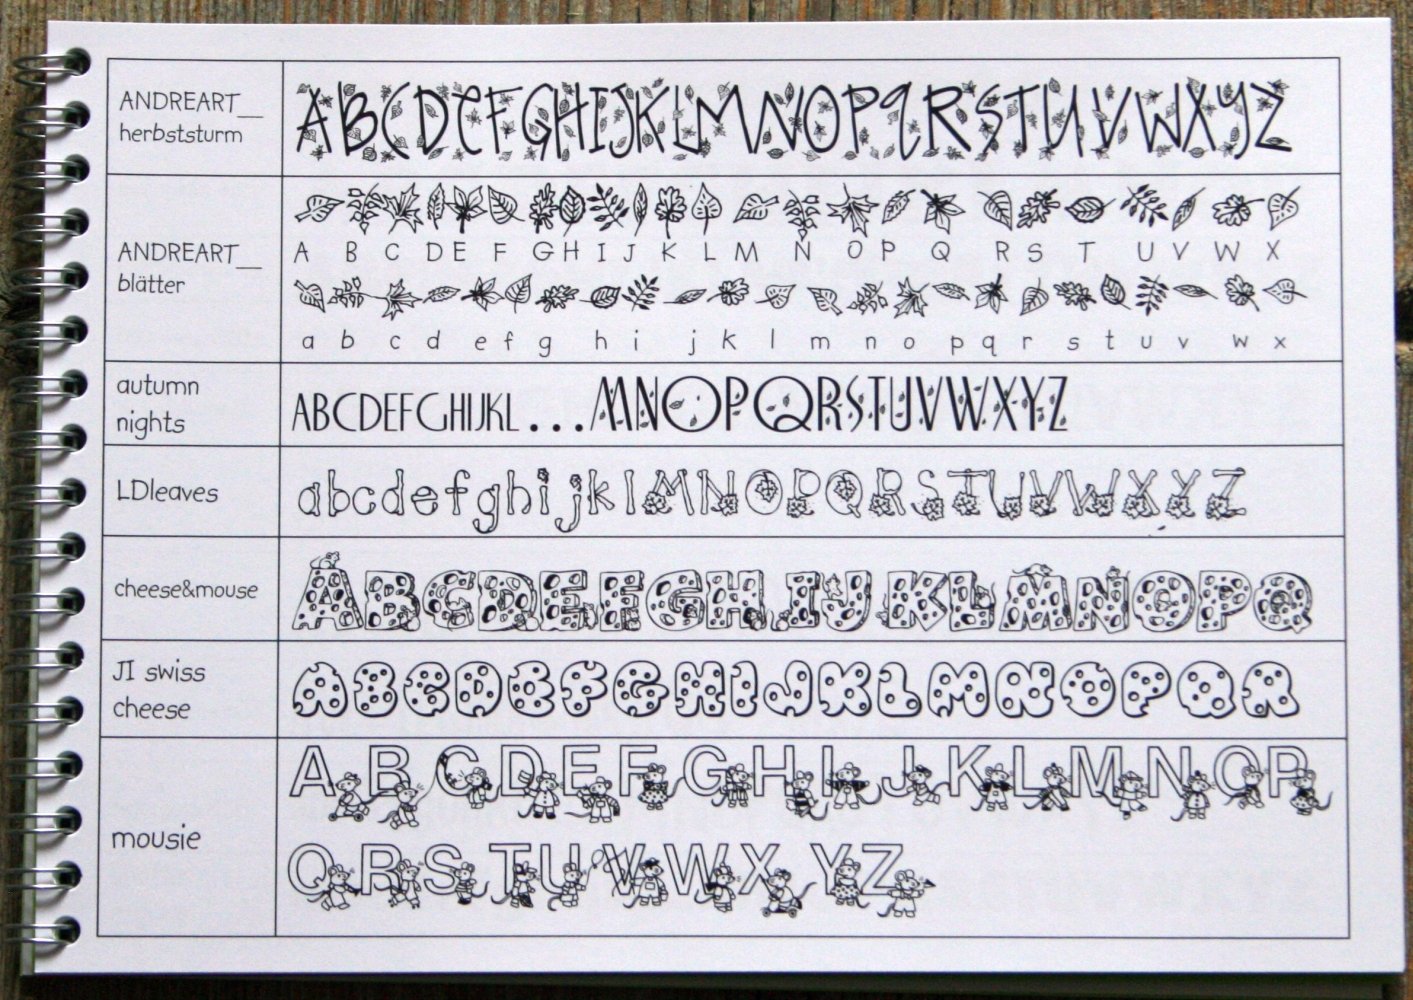 ANDREART__
herbststurm
ABCDEFGHIJKLMNOPQRSTUVWXYZ
ANDREART__
blätter
A B C D E F G H I J K L M N O P Q R S T U V W X
a b c d e f g h i j k l m n o p q r s t u v w x
autumn
nights
ABCDEFGHIJKL...MNOPQRSTUVWXYZ
LDleaves
abcdefghijklMNOPQRSTUVWXYZ
cheese&mouse
ABCDEFGHIJKLMNOPQ
JI swiss
cheese
ABCDEFGHIJKLMNOPQR
mousie
ABCDEFGHIJKLMNOP
QRSTUVWXYZ